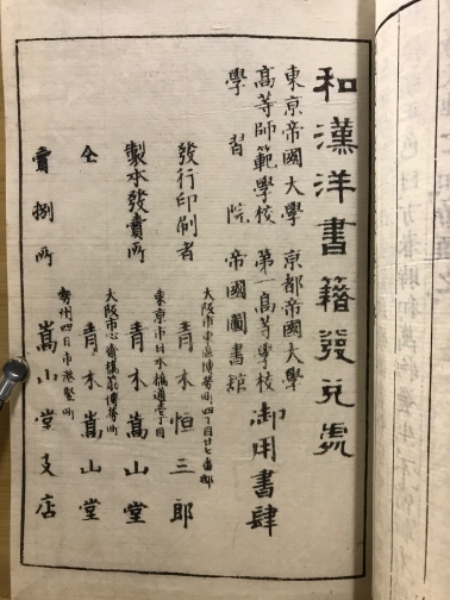 和漢洋書籍發兌處
東亰帝國大學 亰都帝國大學
高等師範學校 第一高等學校
學習院 帝國圖書館
御用書肆
大阪市東區博勞町四丁目廿七番邸
發行印刷者 青木恒三郎
東亰市日本橋通壹丁目
製本發賣所 青木嵩山堂
大阪市心齋橋筋博勞町
仝 青木嵩山堂
勢州四日市港竪町
賣捌所 嵩山堂支店